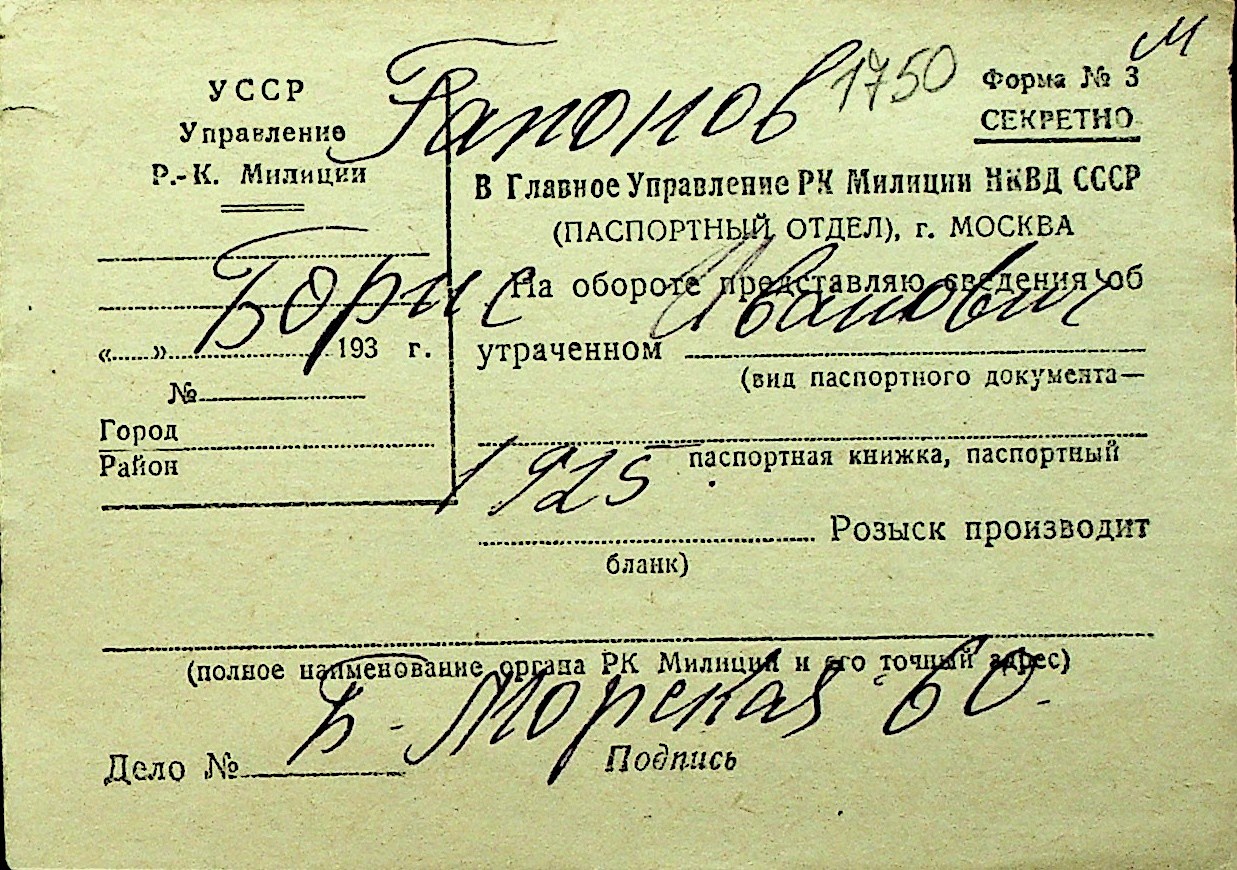 М
Гапонов 1750
УССР
Управление
Р.-К. Милиции
Форма № 3
СЕКРЕТНО
В Главное Управление РК Милиции НКВД СССР
(ПАСПОРТНЫЙ ОТДЕЛ), г. МОСКВА
Борис Иванович
На обороте представляю сведения об
«......»........................193 г.
утраченном
(вид паспортного документа—
№
Город
Район
паспортная книжка, паспортный
1925
Розыск производит
бланк)
(полное наименование органа РК Милиции и его точный адрес)
Б-Морская 60.
Дело № Подпись